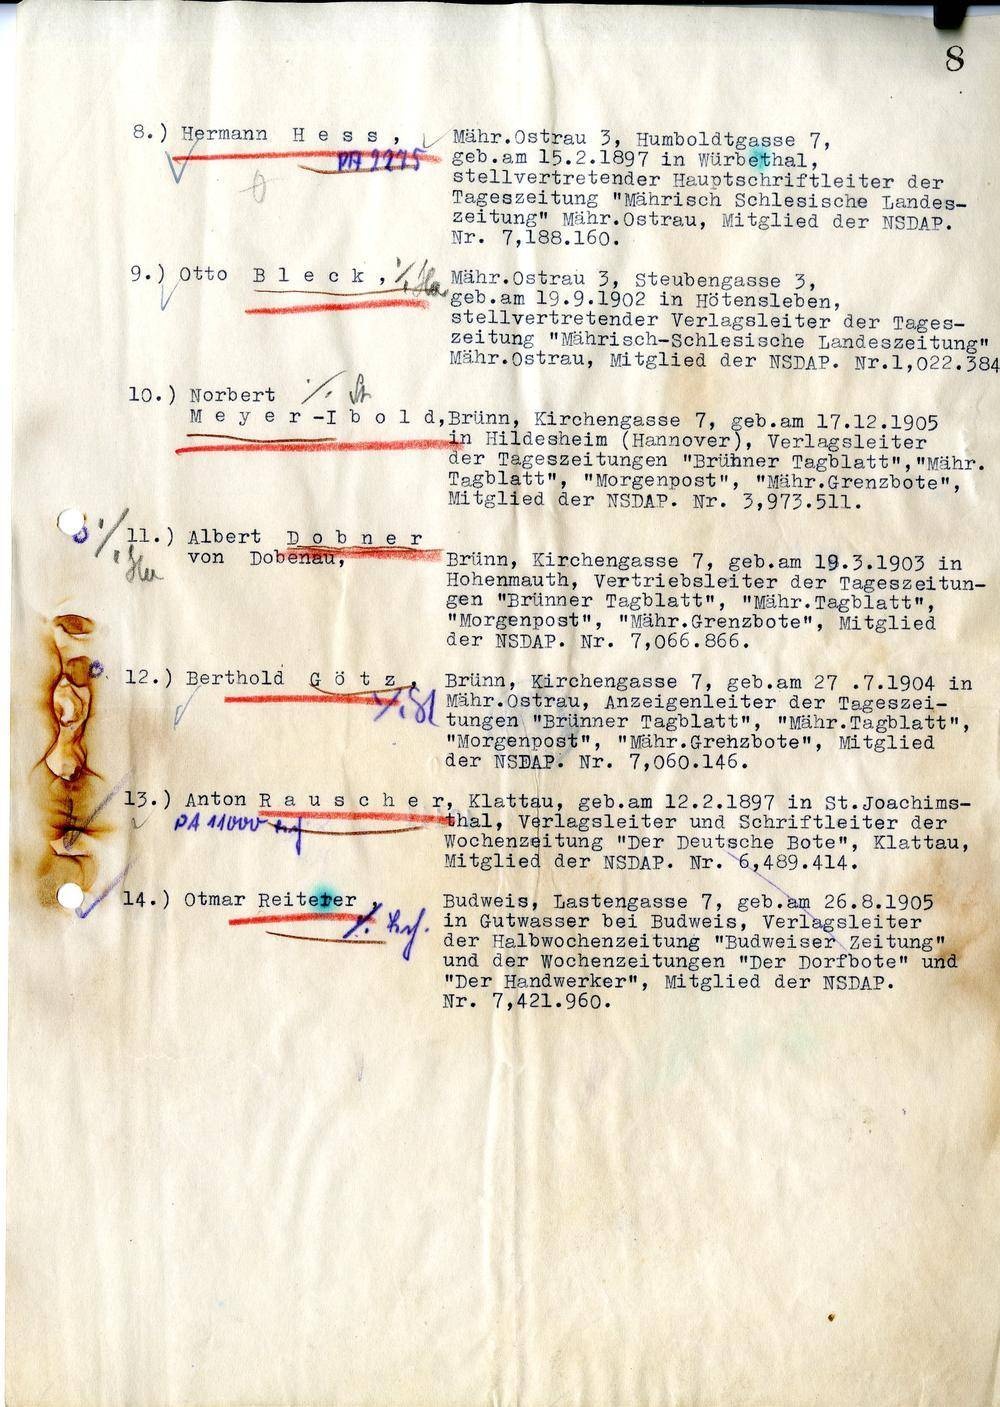 8
8.) Hermann H e s s , Mähr.Ostrau 3, Humboldtgasse 7,
PA 2275 geb.am 15.2.1897 in Würbethal,
stellvertretender Hauptschriftleiter der
Tageszeitung "Mährisch Schlesische Landes-
zeitung" Mähr.Ostrau, Mitglied der NSDAP.
Nr. 7,188.160.
9.) Otto B l e c k , Mähr.Ostrau 3, Steubengasse 3,
geb.am 19.9.1902 in Hötensleben,
stellvertretender Verlagsleiter der Tages-
zeitung "Mährisch-Schlesische Landeszeitung"
Mähr.Ostrau, Mitglied der NSDAP. Nr.1,022.384
10.) Norbert
M e y e r -I b o l d, Brünn, Kirchengasse 7, geb.am 17.12.1905
in Hildesheim (Hannover), Verlagsleiter
der Tageszeitungen "Brühner Tagblatt","Mähr.
Tagblatt", "Morgenpost", "Mähr.Grenzbote",
Mitglied der NSDAP. Nr. 3,973.511.
11.) Albert D o b n e r
von Dobenau, Brünn, Kirchengasse 7, geb.am 19.3.1903 in
Hohenmauth, Vertriebsleiter der Tageszeitun-
gen "Brünner Tagblatt", "Mähr.Tagblatt",
"Morgenpost", "Mähr.Grenzbote", Mitglied
der NSDAP. Nr. 7,066.866.
12.) Berthold G ö t z , Brünn, Kirchengasse 7, geb.am 27 .7.1904 in
Mähr.Ostrau, Anzeigenleiter der Tageszei-
tungen "Brünner Tagblatt", "Mähr.Tagblatt",
"Morgenpost", "Mähr.Grehzbote", Mitglied
der NSDAP. Nr. 7,060.146.
13.) Anton R a u s c h e r, Klattau, geb.am 12.2.1897 in St.Joachims-
PA 11000 thal, Verlagsleiter und Schriftleiter der
Wochenzeitung "Der Deutsche Bote", Klattau,
Mitglied der NSDAP. Nr. 6,489.414.
14.) Otmar Reiterer , Budweis, Lastengasse 7, geb.am 26.8.1905
in Gutwasser bei Budweis, Verlagsleiter
der Halbwochenzeitung "Budweiser Zeitung"
und der Wochenzeitungen "Der Dorfbote" und
"Der Handwerker", Mitglied der NSDAP.
Nr. 7,421.960.